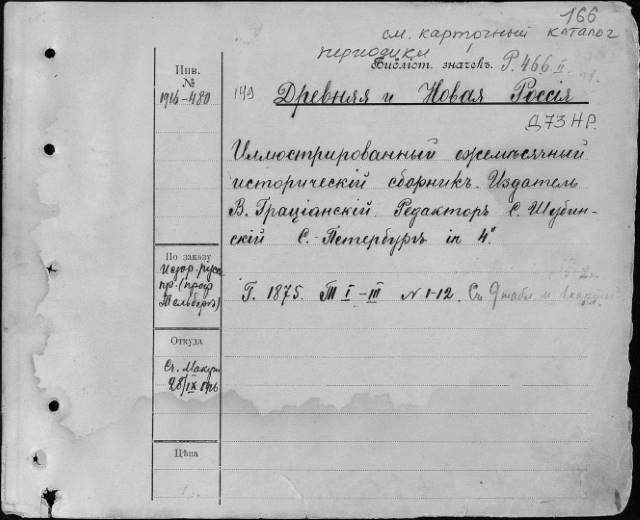 166
см. карточный каталог
периодики
Библіот. значекъ P.466 II
Инв.
№
1916-480
149 Древняя и Новая Россія
Д73 НР.
Иллюстрированный ежемѣсячный
историческій сборникъ. Издатель
В. Граціанскій. Редакторъ С. Шубин-
скій С.-Петербургъ in 4°.
По заказу
пр. (проф
Тельберъ)
Г. 1875. Т I-III N 1-12. Съ 9 табл. и
Откуда
Ст. Макуш
28/IX 1916
Цѣна